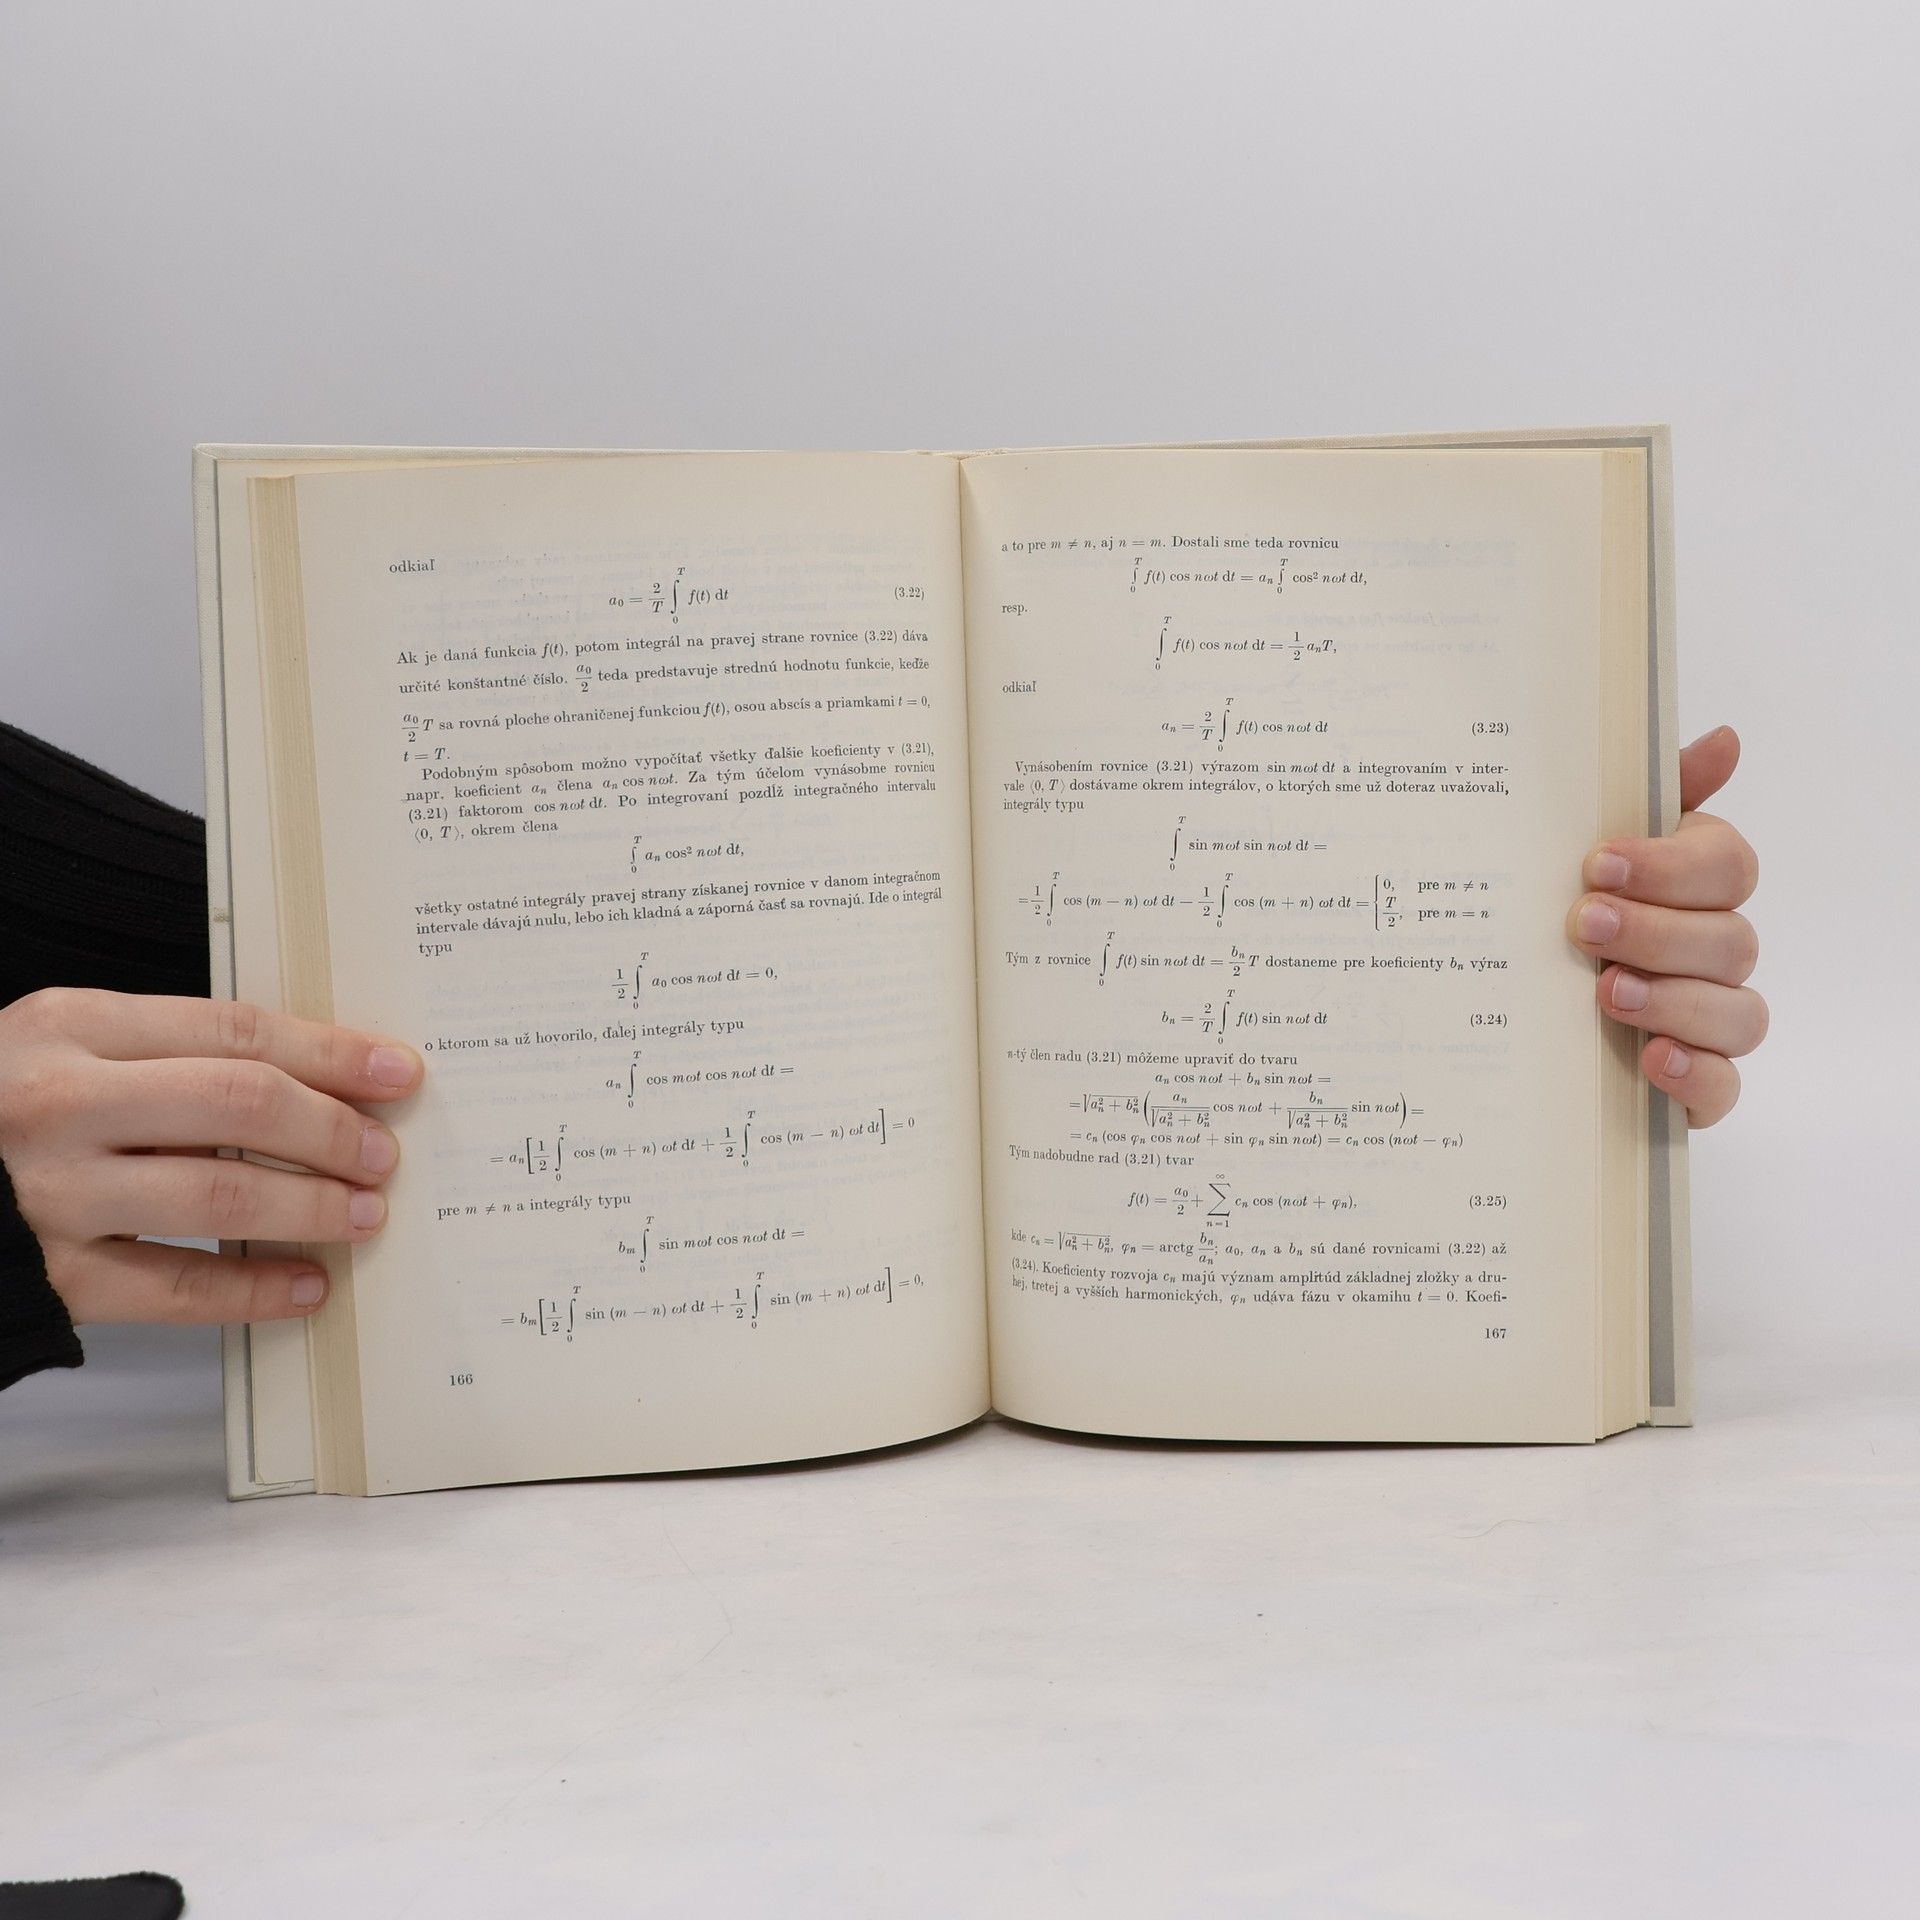 odkiaľ
a₀ = 2/T ∫₀ᵀ f(t) dt (3.22)
Ak je daná funkcia f(t), potom integrál na pravej strane rovnice (3.22) dáva
určité konštantné číslo. a₀/2 teda predstavuje strednú hodnotu funkcie, keďže
a₀/2 T sa rovná ploche ohraničenej funkciou f(t), osou abscís a priamkami t = 0,
t = T.
Podobným spôsobom možno vypočítať všetky ďalšie koeficienty v (3.21),
napr. koeficient aₙ člena aₙ cos nωt. Za tým účelom vynásobme rovnicu
(3.21) faktorom cos nωt dt. Po integrovaní pozdĺž integračného intervalu
⟨0, T⟩, okrem člena
∫₀ᵀ aₙ cos² nωt dt,
všetky ostatné integrály pravej strany získanej rovnice v danom integračnom
intervale dávajú nulu, lebo ich kladná a záporná časť sa rovnajú. Ide o integrál
typu
1/2 ∫₀ᵀ a₀ cos nωt dt = 0,
o ktorom sa už hovorilo, ďalej integrály typu
aₙ ∫₀ᵀ cos mωt cos nωt dt =
= aₙ[1/2 ∫₀ᵀ cos (m + n) ωt dt + 1/2 ∫₀ᵀ cos (m − n) ωt dt] = 0
pre m ≠ n a integrály typu
bₘ ∫₀ᵀ sin mωt cos nωt dt =
= bₘ[1/2 ∫₀ᵀ sin (m − n) ωt dt + 1/2 ∫₀ᵀ sin (m + n) ωt dt] = 0,
166
a to pre m ≠ n, aj n = m. Dostali sme teda rovnicu
∫₀ᵀ f(t) cos nωt dt = aₙ ∫₀ᵀ cos² nωt dt,
resp.
∫₀ᵀ f(t) cos nωt dt = 1/2 aₙT,
odkiaľ
aₙ = 2/T ∫₀ᵀ f(t) cos nωt dt (3.23)
Vynásobením rovnice (3.21) výrazom sin mωt dt a integrovaním v inter-
vale ⟨0, T⟩ dostávame okrem integrálov, o ktorých sme už doteraz uvažovali,
integrály typu
∫₀ᵀ sin mωt sin nωt dt =
= 1/2 ∫₀ᵀ cos (m − n) ωt dt − 1/2 ∫₀ᵀ cos (m + n) ωt dt = { 0, pre m ≠ n
T/2, pre m = n
Tým z rovnice ∫₀ᵀ f(t) sin nωt dt = bₙ/2 T dostaneme pre koeficienty bₙ výraz
bₙ = 2/T ∫₀ᵀ f(t) sin nωt dt (3.24)
n-tý člen radu (3.21) môžeme upraviť do tvaru
aₙ cos nωt + bₙ sin nωt =
= √(aₙ² + bₙ²) (aₙ/√(aₙ² + bₙ²) cos nωt + bₙ/√(aₙ² + bₙ²) sin nωt) =
= cₙ (cos φₙ cos nωt + sin φₙ sin nωt) = cₙ cos (nωt − φₙ)
Tým nadobudne rad (3.21) tvar
f(t) = a₀/2 + ∑ₙ₌₁^∞ cₙ cos (nωt + φₙ), (3.25)
kde cₙ = √(aₙ² + bₙ²), φₙ = arctg bₙ/aₙ; a₀, aₙ a bₙ sú dané rovnicami (3.22) až
(3.24). Koeficienty rozvoja cₙ majú význam amplitúd základnej zložky a dru-
hej, tretej a vyšších harmonických, φₙ udáva fázu v okamihu t = 0. Koefi-
167